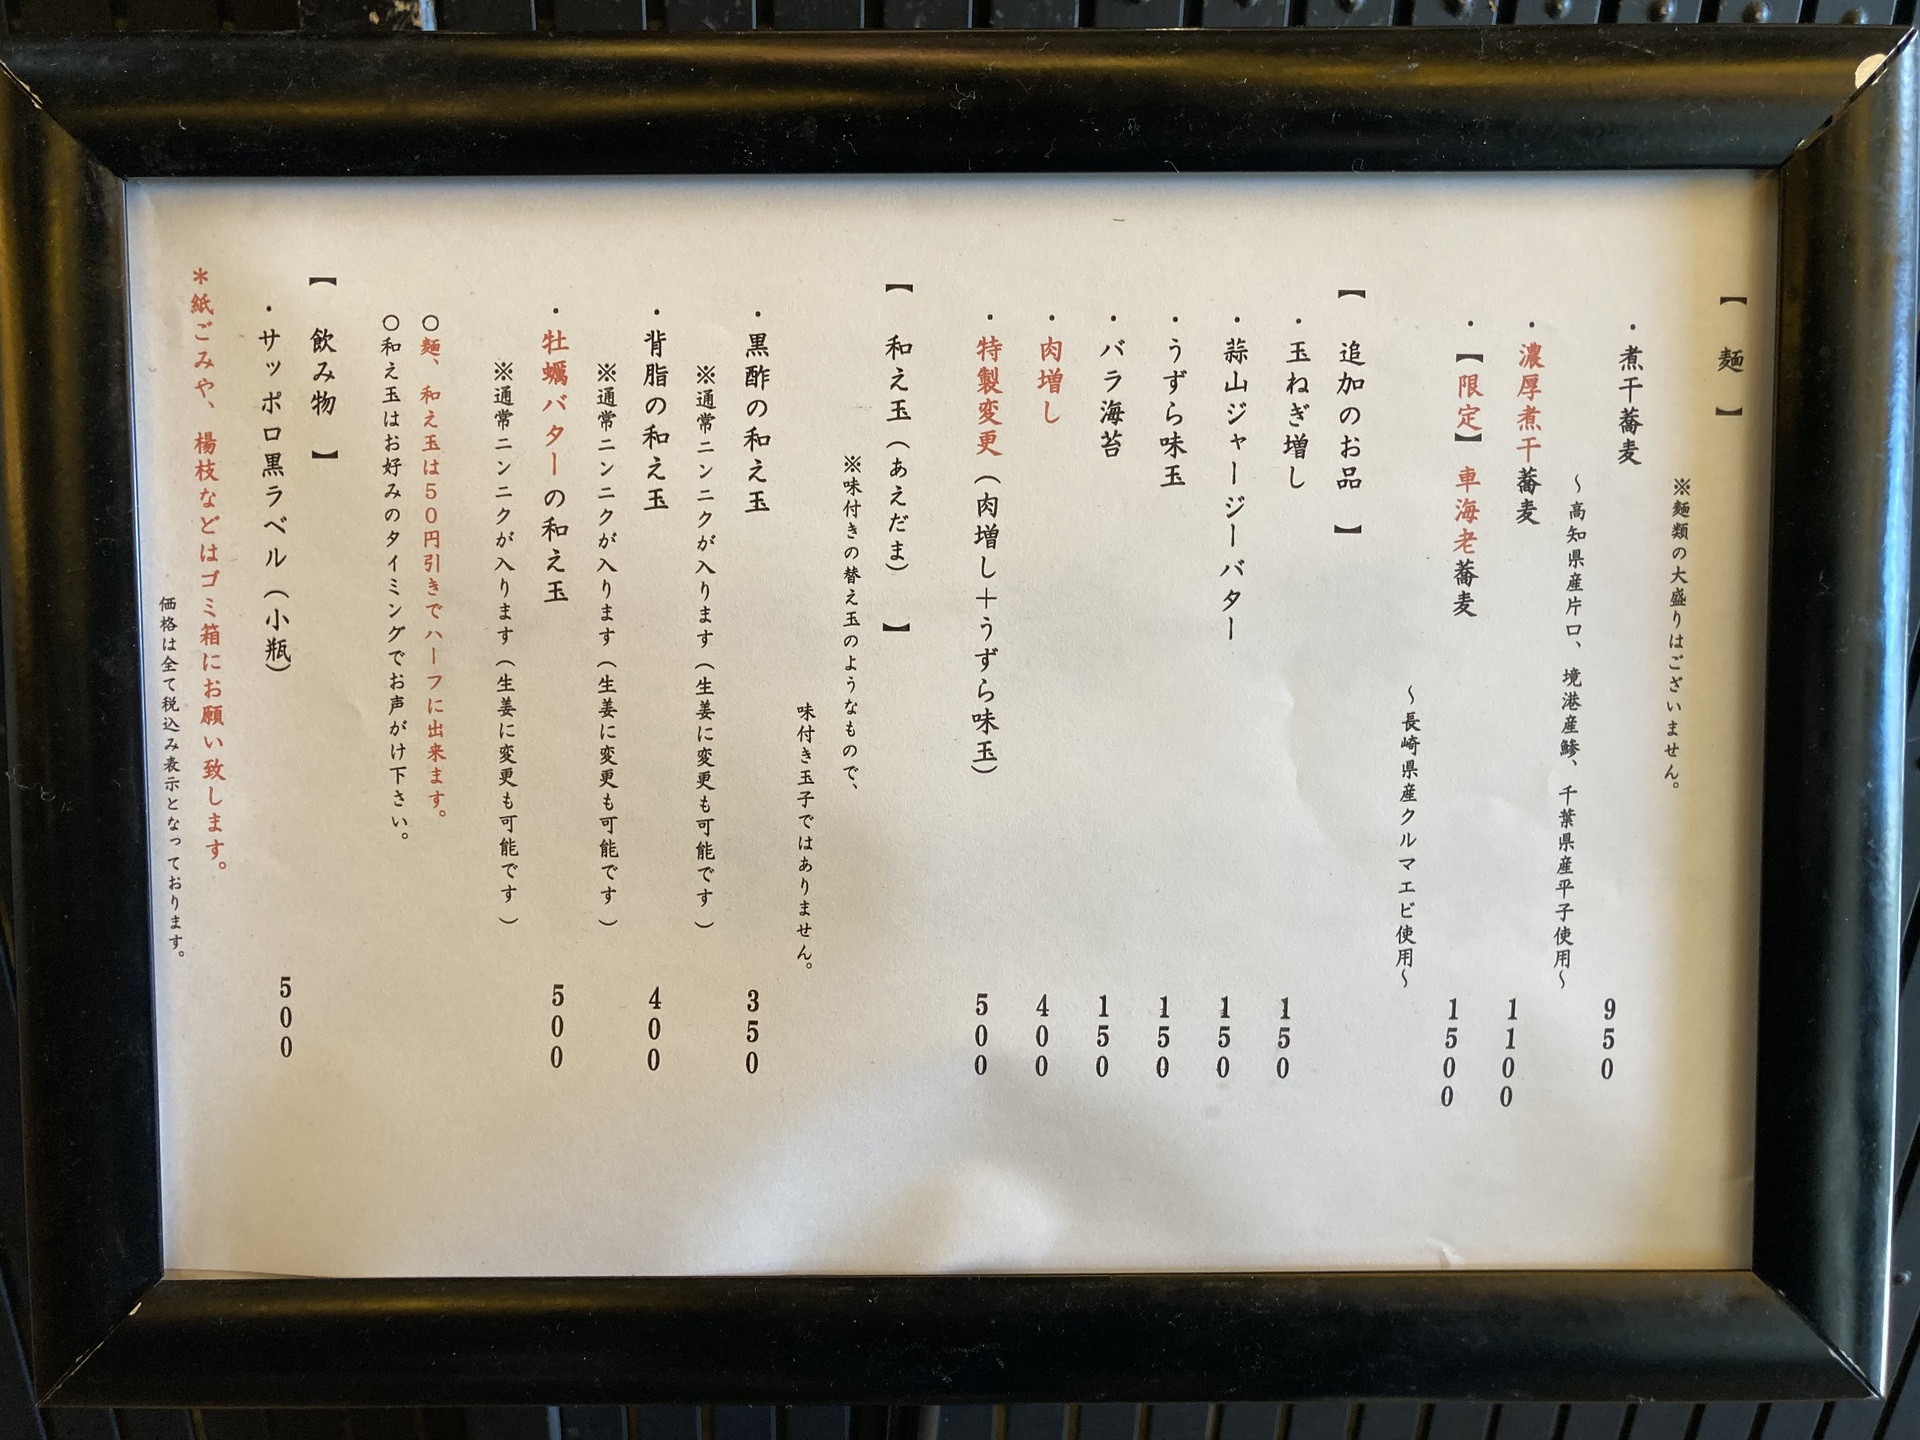 【 麺 】
※麺類の大盛りはございません。
・煮干蕎麦 950
～高知県産片口、境港産鯵、千葉県産平子使用～
・濃厚煮干蕎麦 1100
・【限定】車海老蕎麦 1500
～長崎県産クルマエビ使用～
【 追加のお品 】
・玉ねぎ増し 150
・蒜山ジャージーバター 150
・うずら味玉 150
・バラ海苔 150
・肉増し 400
・特製変更（肉増し＋うずら味玉） 500
【 和え玉（あえだま） 】
※味付きの替え玉のようなもので、
味付き玉子ではありません。
・黒酢の和え玉 350
※通常ニンニクが入ります（生姜に変更も可能です）
・背脂の和え玉 400
※通常ニンニクが入ります（生姜に変更も可能です）
・牡蠣バターの和え玉 500
※通常ニンニクが入ります（生姜に変更も可能です）
○麺、和え玉は50円引きでハーフに出来ます。
○和え玉はお好みのタイミングでお声がけ下さい。
【 飲み物 】
・サッポロ黒ラベル（小瓶） 500
＊紙ごみや、楊枝などはゴミ箱にお願い致します。
価格は全て税込み表示となっております。